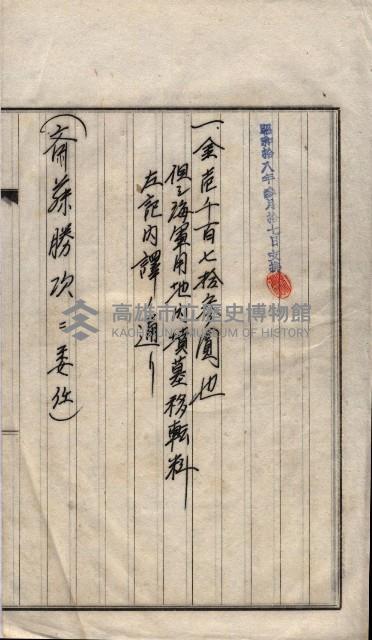 昭和拾八年 月拾七日
一金壱千百七拾 圓也
但シ海軍用地内墳墓移転料
左記内譯ノ通リ
(斎藤勝次ニ委任)
高雄市立歷史博物館
KAOHSIUNG MUSEUM OF HISTORY